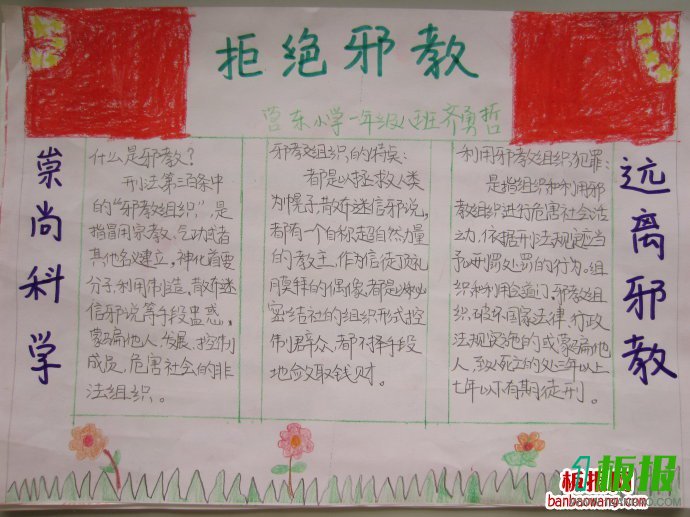 拒绝邪教
营东小学一年级八班齐勇哲
崇尚科学
什么是邪教?
刑法第三百条中
的"邪教组织",是
指冒用宗教、气功或者
其他名义建立,神化首要
分子,利用制造、散布迷
信邪说等手段蛊惑,
蒙骗他人,发展、控制
成员,危害社会的非
法组织。
邪教组织的特点:
都是以拯救人类
为幌子,散布迷信邪说,
都有一个自称超自然力量
的教主,作为信徒顶礼
膜拜的偶像,都是以秘
密结社的组织形式控
制群众,都不择手段
地敛取钱财。
利用邪教组织犯罪:
是指组织和利用邪
教组织进行危害社会活
动,依据刑法规定应当
予以刑罚处罚的行为。组
织和利用会道门,邪教组
织,破坏国家法律,行政
法规实施的或蒙骗他
人,致人死亡的处三年以上
七年以下有期徒刑。
远离邪教
板报
板报网
banbaowang.com